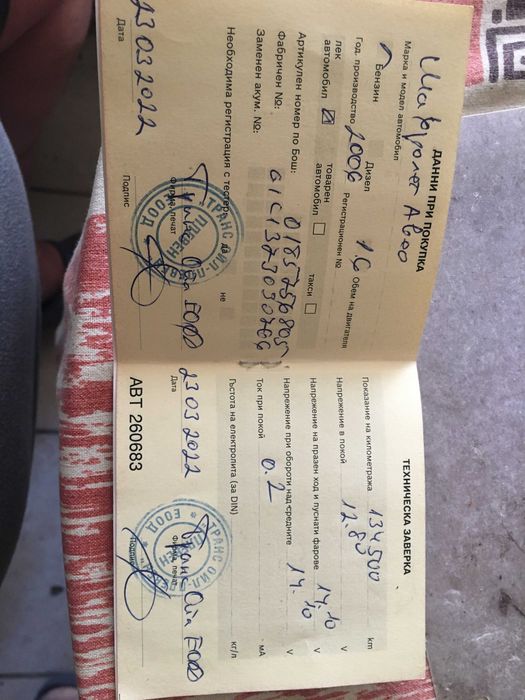 ДАННИ ПРИ ПОКУПКА
Шевролет Авео
Марка и модел автомобил
Бензин
Дизел
1.6 Обем на двигателя
Год. производство 2006 Регистрационен №
лек автомобил
товарен автомобил
такси
Артикулен номер по Бош: 0185756805
Фабричен №: 01C1323030766
Заменен акум. №:
Необходима регистрация с тестер: да
не
Фирма, печат
Транс Ойл ЕООД
23 03 2022
Дата
Подпис
ТЕХНИЧЕСКА ЗАВЕРКА
Показание на километража 134500 km
Напрежение в покой 12.80 V
Напрежение на празен ход и пуснати фарове 14.10 V
Напрежение при обороти над средните 14.10 V
Ток при покой 0.2 мА
Гъстота на електролита (за DIN) кг/л
23 03 2022 Транс Ойл ЕООД
Дата
Фирма, печат
Подпис
АВТ 260683